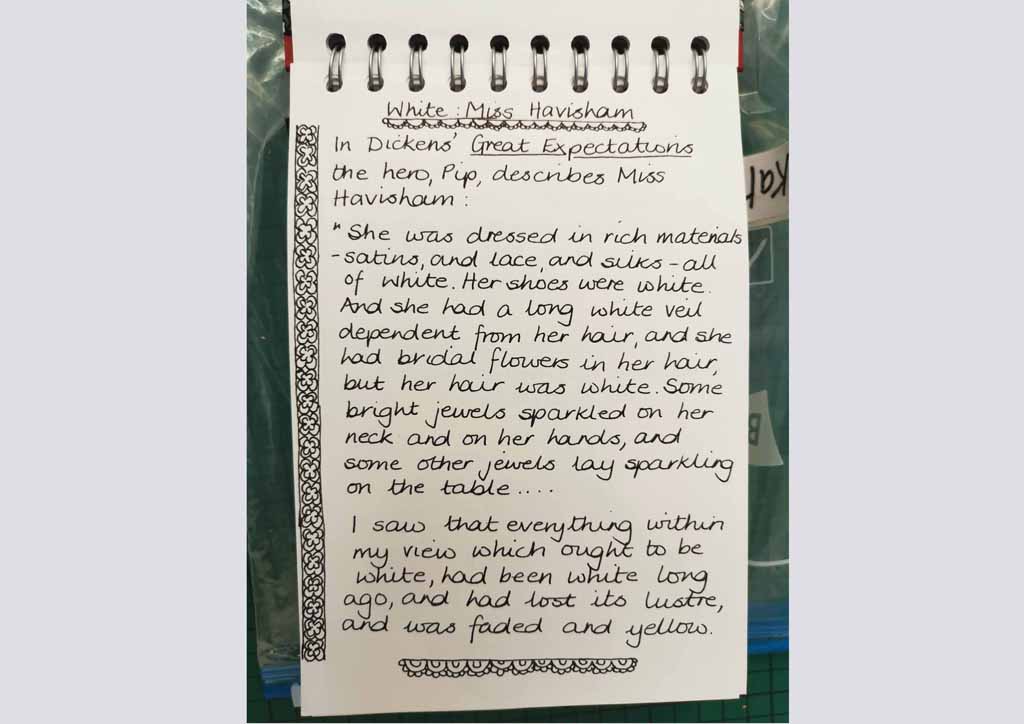 White : Miss Havisham
In Dickens' Great Expectations
the hero, Pip, describes Miss
Havisham :
"She was dressed in rich materials
- satins, and lace, and silks - all
of white. Her shoes were white.
And she had a long white veil
dependent from her hair, and she
had bridal flowers in her hair,
but her hair was white. Some
bright jewels sparkled on her
neck and on her hands, and
some other jewels lay sparkling
on the table ....
I saw that everything within
my view which ought to be
white, had been white long
ago, and had lost its lustre,
and was faded and yellow.